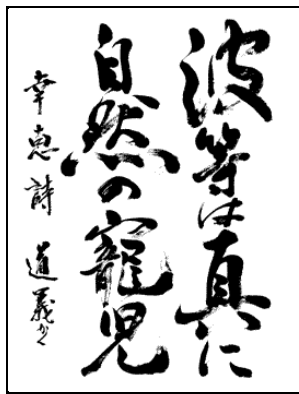 波等は真に
自然の寵児
幸恵詩 道義かく